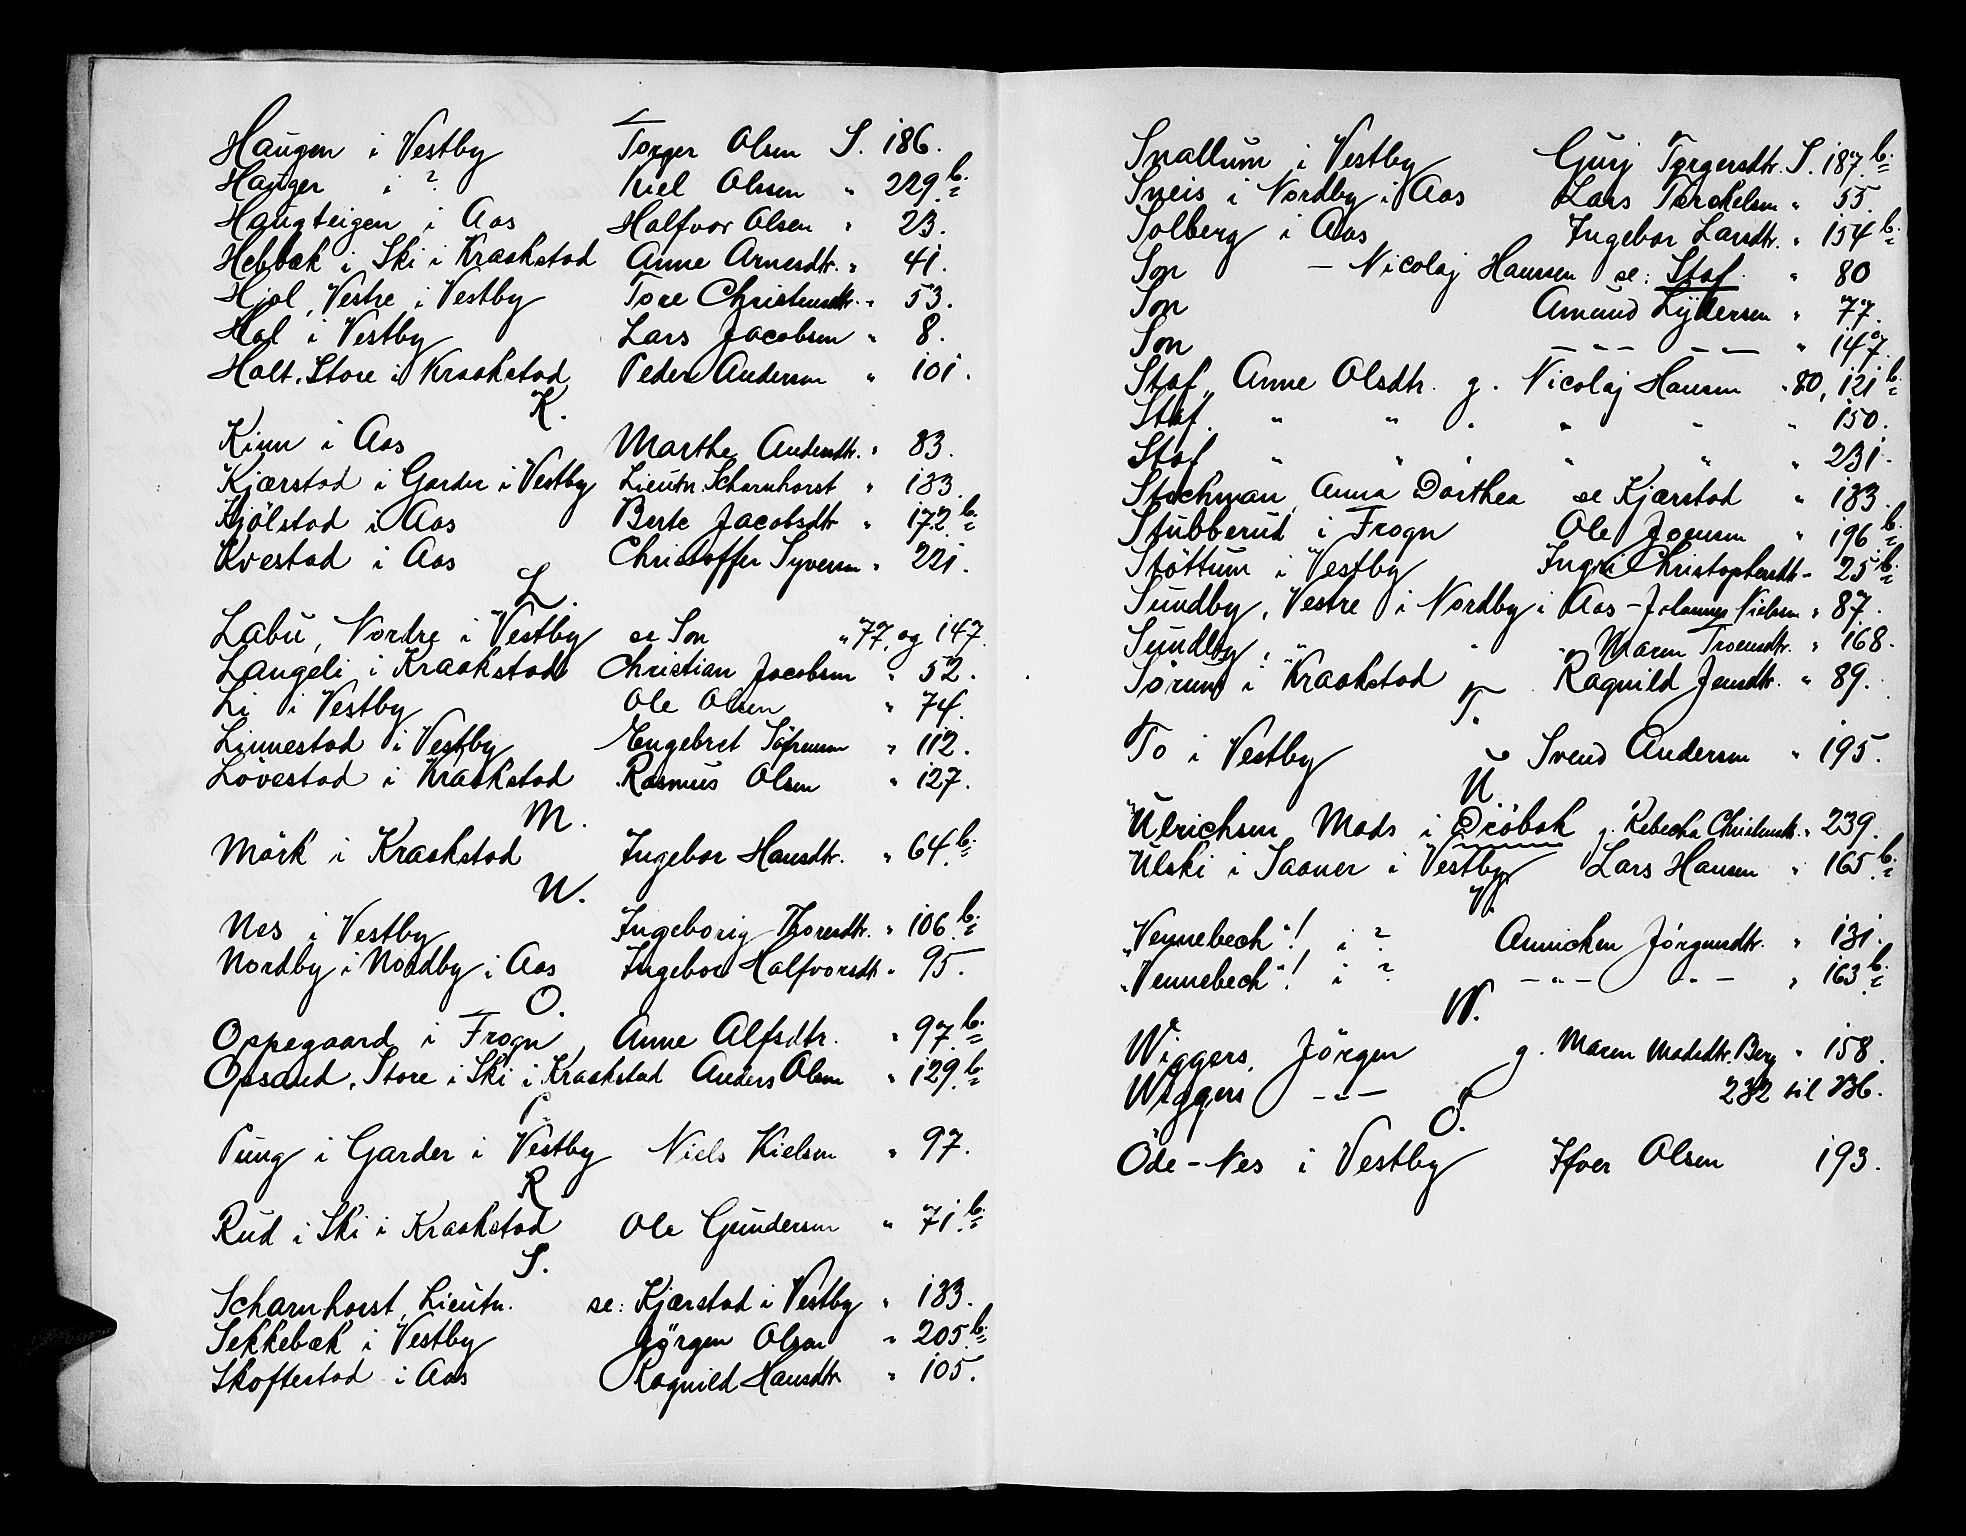 Haugen i Vestby Torger Olsen S. 186.
Hauger i ? Kiel Olssen " 229.b.
Haugteigen i Aas Halfvor Olsen " 23.
Hebbæk i Ski i Kraakstad Anne Arnesdtr. " 41.
Hjol, Vestre i Vestby Tore Christensdtr. " 53.
Hol i Vestby Lars Jacobsen " 8.
Holt, Store i Kraakstad Peder Andersen " 101.
K.
Kinn i Aas Marthe Andersdtr. " 83.
Kjærstad i Garder i Vestby Lieutn. Scharnhorst " 183.
Kjölstad i Aas Berte Jacobsdtr " 172.b.
Kvestad i Aas Christoffer Syversen " 221.
L.
Labu, Nordre i Vestby se Son " 77, og 147.
Langeli i Kraakstad Christian Jacobsen " 52.
Li i Vestby Ole Olsen " 74.
Linnestad i Vestby Engebret Söfrensen " 112.
Lövestad i Kraakstad Rasmus Olsen " 127.
M.
Mörk i Kraakstad Ingebor Hansdtr. " 64.b.
N.
Nes i Vestby Ingeborig Thoresdtr. " 106.b.
Nordby i Nordby i Aas Ingebor Halfvorsdtr " 95.
O.
Oppegaard i Frogn Anne Alfsdtr. " 97.b.
Opsand, Store i Ski i Kraakstad Anders Olsen " 129.b.
P
Pung i Garder i Vestby Niels Kielsen " 97.
R
Rud i Ski i Kraakstad Ole Gundersen " 71.b.
S.
Scharnhorst, Lieutn. se: Kjærstad i Vestby " 183.
Sekkebæk i Vestby Jörgen Olsen " 205.b.
Skoftestad i Aas Ragnild Hansdtr " 105.
Snallum i Vestby Gurj Torgersdtr. S. 187.b.
Sneis i Nordby i Aas Lars Torckelsen " 55.
Solberg i Aas Ingebor Larsdtr. " 154 b.
Son - Nicolaj Hanssen se: Staf. " 80
Son Amund Lydersen " 77.
Son - " - - " - " 147.
Staf, Anne Olsdtr. g. Nicolaj Hansen " 80, 121 b.
Staf. " " " " " " 150.
Staf " " " " " " 231.
Stockman, Anna Dorthea se Kjærstad " 183.
Stubberud i Frogn Ole Joensen " 196.b.
Stöttum i Vestby Ingri Christophersdtr - 25 b.
Sundby, Vestre i Nordby i Aas - Johannes Nielsen " 87.
Sundby, " " " Maren Troensdtr. " 168.
Sörum i Kraakstad Ragnild Jensdtr. " 89.
T.
To i Vestby Svend Andersen " 195.
U.
Ulrichsen, Mads i Dröbak g. Rebecka Christensdtr. " 239.
Ulski i Saaner i Vestby Lars Hansen " 165.b.
V.
"Vennebech"! i ? Annichen Jörgensdtr. " 131.
"Vennebech"! i ? - " - - " - " 163 b.
W.
Wiggers, Jörgen g. Maren Madsdtr. Berg " 158.
Wiggers - " - 232 til 236.
Ö.
Öde-Nes i Vestby Ifver Olsen 193.